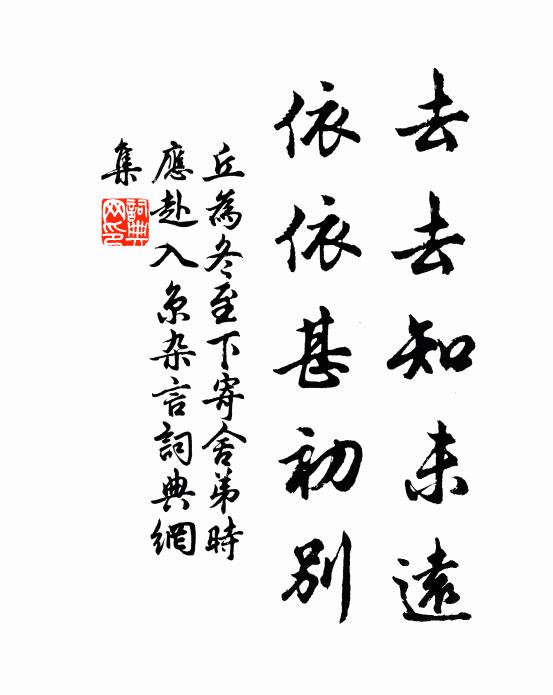 去去知未遠
依依甚初別
丘為冬至下寄舍弟時
應赴入京杂言詞典網
集
詞典网印